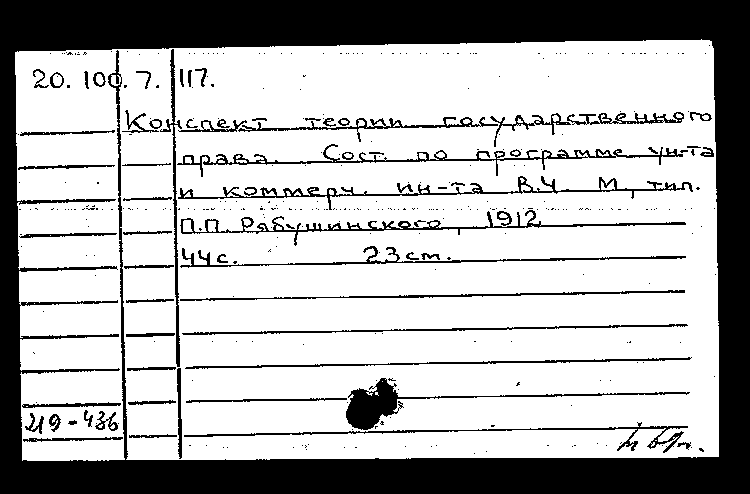 20. 100. 7. 117.
Конспект теории государственного
права. Сост. по программе ун-та
и коммерч. ин-та В.Ч. М., тип.
П.П. Рябушинского, 1912
44с. 23см.
219-436